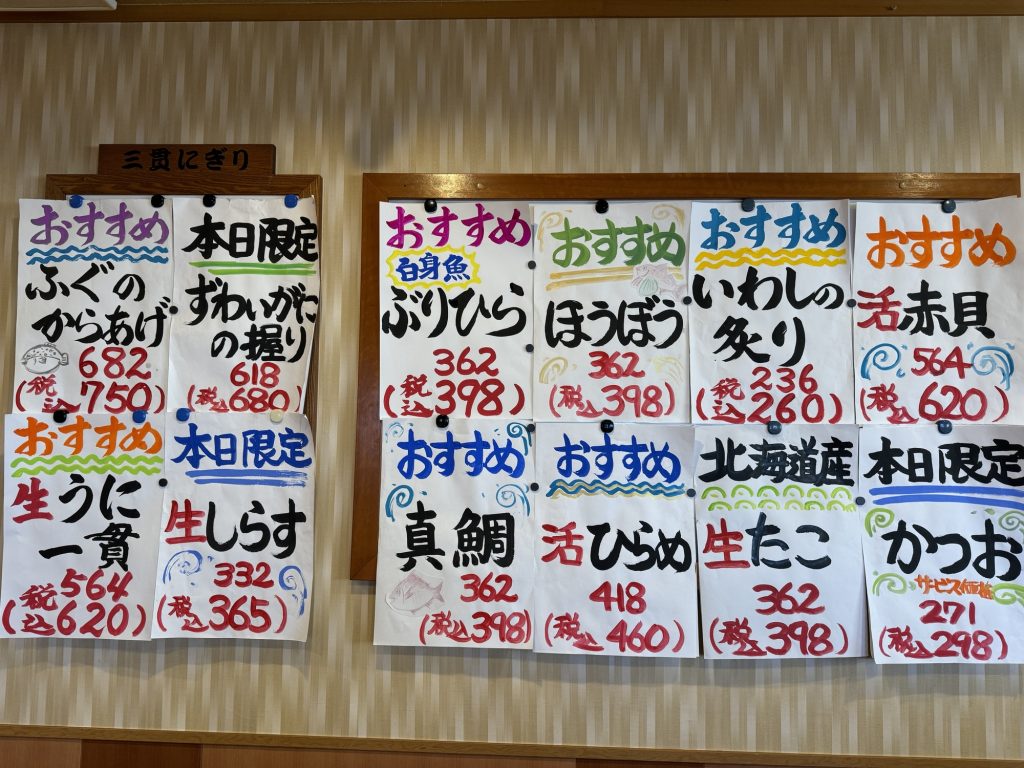 三貫にぎり
おすすめ
ふぐの
からあげ
682
(税込750)
本日限定
ずわいがに
の握り
618
(税込680)
おすすめ
生うに
一貫
564
(税込620)
本日限定
生しらす
332
(税込365)
おすすめ
白身魚
ぶりひら
362
(税込398)
おすすめ
ほうぼう
362
(税込398)
おすすめ
いわしの
炙り
236
(税込260)
おすすめ
活赤貝
564
(税込620)
おすすめ
真鯛
362
(税込398)
おすすめ
活ひらめ
418
(税込460)
北海道産
生たこ
362
(税込398)
本日限定
かつお
サービス価格
271
(税込298)